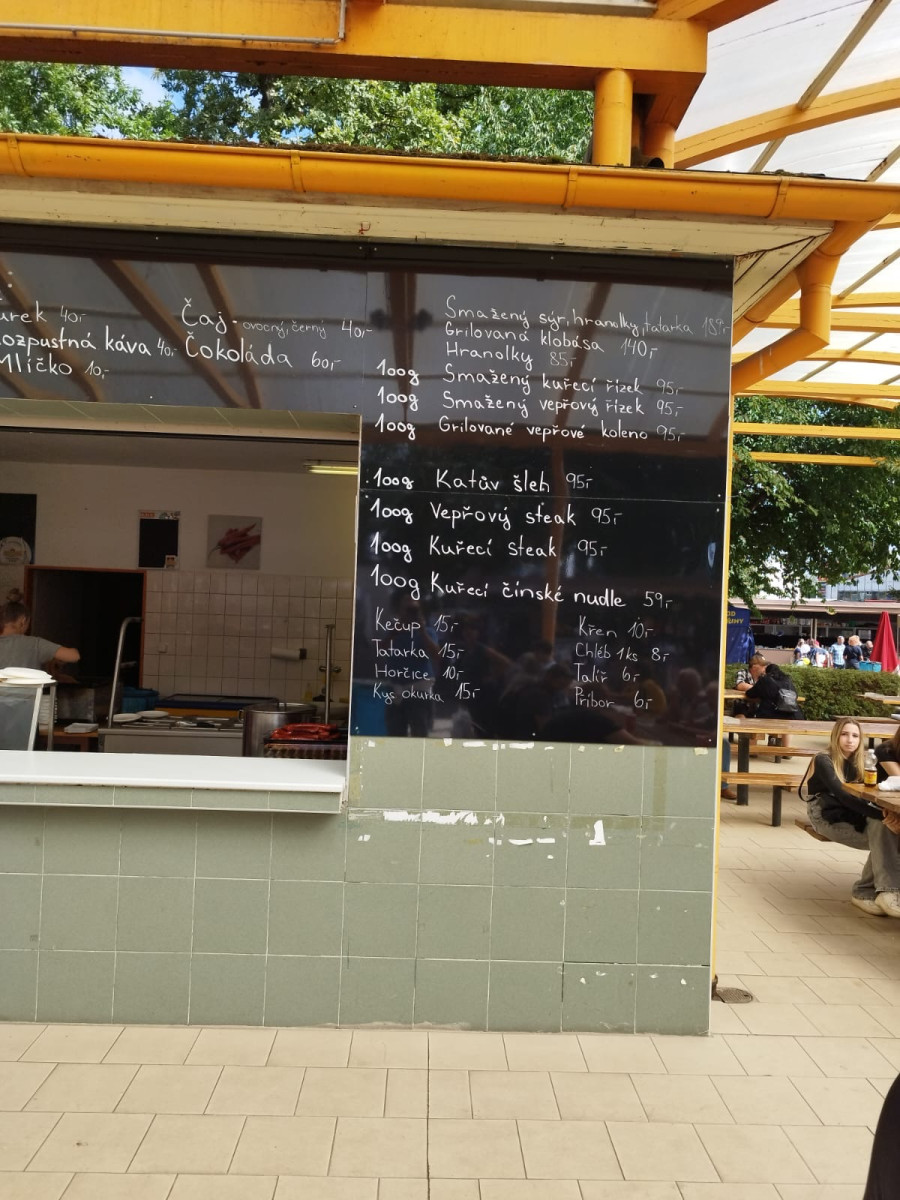 40,-
Rozpustná káva 40,-
Mlíčko 10,-
Čaj - ovocný, černý 40,-
Čokoláda 60,-
Smažený sýr, hranolky, tatarka
Grilovaná klobása 140,-
Hranolky 85,-
100g Smažený kuřecí řízek 95,-
100g Smažený vepřový řízek 95,-
100g Grilované vepřové koleno 95,-
100g Katův šleh 95,-
100g Vepřový steak 95,-
100g Kuřecí steak 95,-
100g Kuřecí čínské nudle 59,-
Kečup 15,-
Tatarka 15,-
Horčice 10,-
Kys okurka 15,-
Křen 10,-
Chléb 1ks 8,-
Talíř 6,-
Příbor 6,-